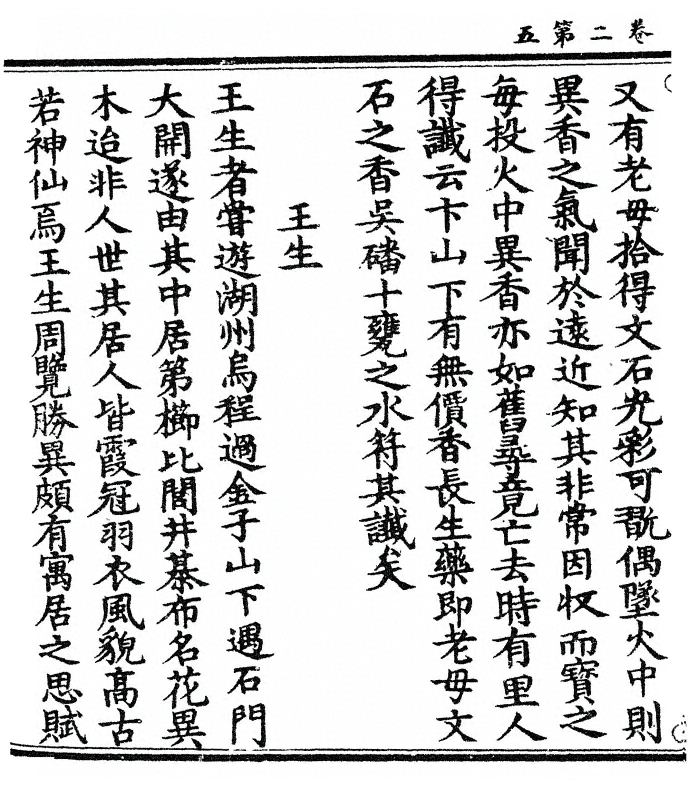 卷二第五
又有老毋拾得文石光彩可翫偶墜火中則
異香之氣聞於遠近知其非常因收而寶之
每投火中異香亦如舊尋竟亡去時有里人
得讖云卞山下有無價香長生藥即老毋文
石之香吳磻十甕之水符其讖矣
王生
王生者嘗遊湖州烏程過金子山下遇石門
大開遂由其中居第櫛比閭井棊布名花異
木迨非人世其居人皆霞冠羽衣風貌髙古
若神仙焉王生周覽勝異頗有寓居之思賦